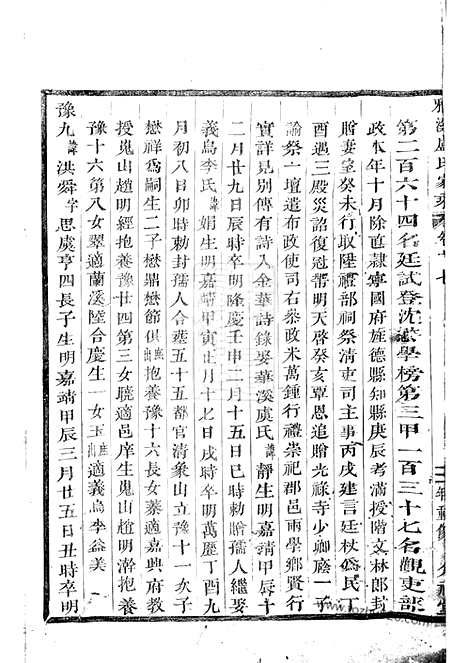 雅溪盧氏家乘卷十七
第二百六十四名廷試登沈懋學榜第三甲一百三十七名觀吏部
政本年十月除直隸寧國府旌德縣知縣庚辰考滿授階文林郎封
贈妻室癸未行取陞禮部祠祭清吏司主事丙戌建言廷杖為民丁
酉遇三殿災詔復冠帶明天啓癸亥覃恩追贈光祿寺少卿廕一子
諭祭一壇遣布政使司右叅政朱萬鍾行禮崇祀郡邑兩學鄉賢行
實詳見別傳有詩載入金華詩錄娶華溪虞氏諱靜生明嘉靖甲辰十
二月廿九日辰時卒明隆慶壬申二月十五日巳時贈孺人繼娶
義烏李氏諱娟生明嘉靖甲寅正月十七日戌時卒明萬曆丁酉六
月初八日卯時勅封孺人合葬五十五都官清象山立豫十一次子
懋祥爲嗣生二子懋鼎懋節俱出抱養豫十六長女瓊適嘉興府教
授嵬山趙明經抱養豫廿四第三女驍適邑庠生嵬山趙明尉抱養
豫十六第八女翠適蘭溪陸合慶生一女玉出適義烏李益美
豫九諱洪舜字思虞亨四長子生明嘉靖甲辰三月廿五日丑時卒明